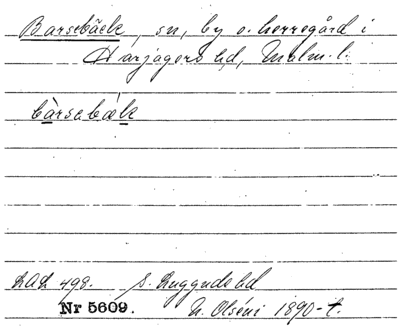 Barsebäck, sn, by o. herregård i
Harjagers hd, Malm. l.
bàrsabæ̀k
LAL 498. S. Luggude hd
Nr 5609. N. Olséni 1890-t.